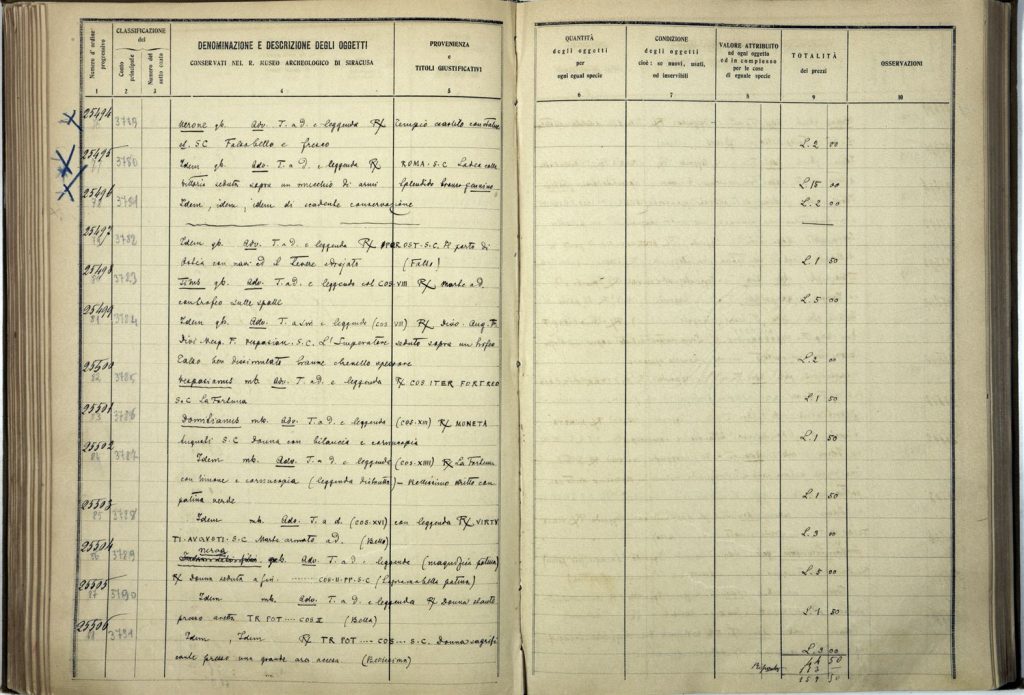 Numero d'ordine progressivo
CLASSIFICAZIONE
del
Conto principale
Numero del sotto conto
DENOMINAZIONE E DESCRIZIONE DEGLI OGGETTI
CONSERVATI NEL R. MUSEO ARCHEOLOGICO DI SIRACUSA
PROVENIENZA
e
TITOLI GIUSTIFICATIVI
QUANTITÀ
degli oggetti
per
ogni egual specie
CONDIZIONE
degli oggetti
cioè: se nuovi, usati,
od inservibili
VALORE ATTRIBUITO
ad ogni oggetto
ed in complesso
per le cose
di eguale specie
TOTALITÀ
dei prezzi
OSSERVAZIONI
1 2 3 4 5 6 7 8 9 10
25494 3779 Nerone gb. Adv. T. a d. e leggenda R/ Tempio
et. S C Falso bello e fresco L. 2 00
25495 3780 Idem gb. Adv. T. a d. e leggenda R/ ROMA. S. C
Vittoria seduta sopra un mucchio di armi Splendido bronzo genuino L. 15 00
25496 3781 Idem, idem, idem di scadente conservazione L. 2 00
25497 3782 Idem gb. Adv. T. a d. e leggenda R/ POR OST. S. C. Il porto di
Ostia con navi ed il Tevere sdrajato (Falso!) L. 1 50
25498 3783 Titus gb. Adv. T. a d. e leggenda col COS VIII R/ Marte a d.
con trofeo sulle spalle L. 5 00
25499 3784 Idem gb. Adv. T. a sin e leggenda (cos VII) R/ Divo. Aug. T.
Divi Vesp. F. Vespasian. S. C. L'Imperatore seduto sopra un trofeo
Falso ben dissimulato L. 2 00
25500 3785 Vespasianus mb. Adv. T. a d. e leggenda R/ COS ITER FORT RED
S. C La Fortuna L. 1 50
25501 3786 Domitianus mb. Adv. T. a d. e leggenda (COS. XII) R/ MONETA
Augusti S. C Donna con bilancia e cornucopia L. 1 50
25502 3787 Idem mb. Adv. T. a d. e leggenda (COS. XIIII) R/ La Fortuna
con timone e cornucopia (leggenda distinta) – Bellissimo diritto con
patina verde L. 1 50
25503 3788 Idem mb. Adv. T. a d. (COS. XVI) con leggenda R/ VIRTU
TI. AUGUSTI. S. C Marte armato a d. (Bello) L. 3 00
25504 3789 Nerva gb. Adv. T. a d. e leggenda (magnifica patina)
R/ Donna seduta a sin. ...... COS. II. PP. S. C (Soprammabella patina) L. 5 00
25505 3790 Idem mb. Adv. T. a d. e leggenda R/ Donna stante
presso aretta TR POT .... COS II (Bella) L. 1 50
25506 3791 Idem, Idem R/ TR POT .... COS .... S. C. Donna sagrifi
cante presso una grande ara accesa (Bellissimo) L. 3 00
Riporto